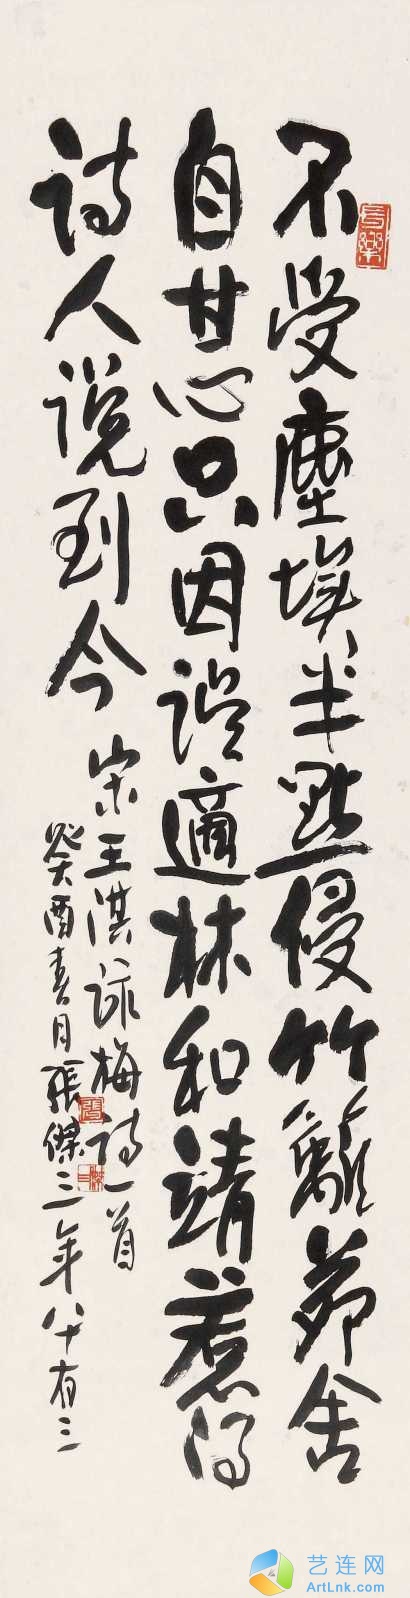 不受塵埃半點侵竹籬茆舍
自甘心只因誤適林和靖惹得
詩人說到今
宋王淇詠梅詩一首
癸酉春月張傑三年八十有三
艺连网
ArtLnk.com